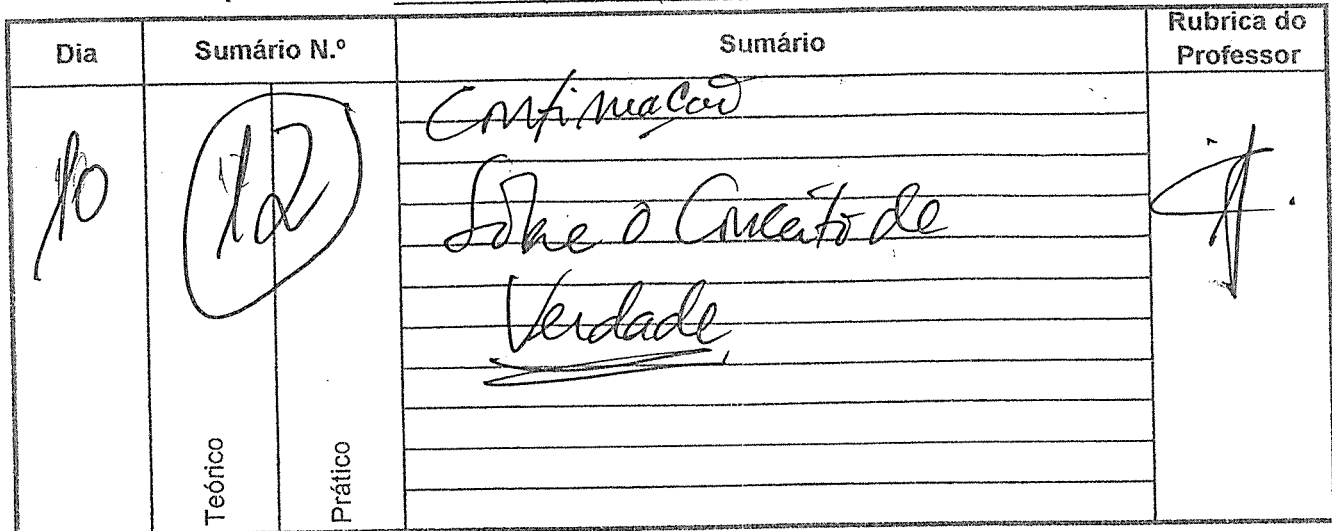 Dia
Sumário N.º
Sumário
Rubrica do
Professor
10
12
Continuação
Sobre o Conceito de
Verdade
Teórico
Prático